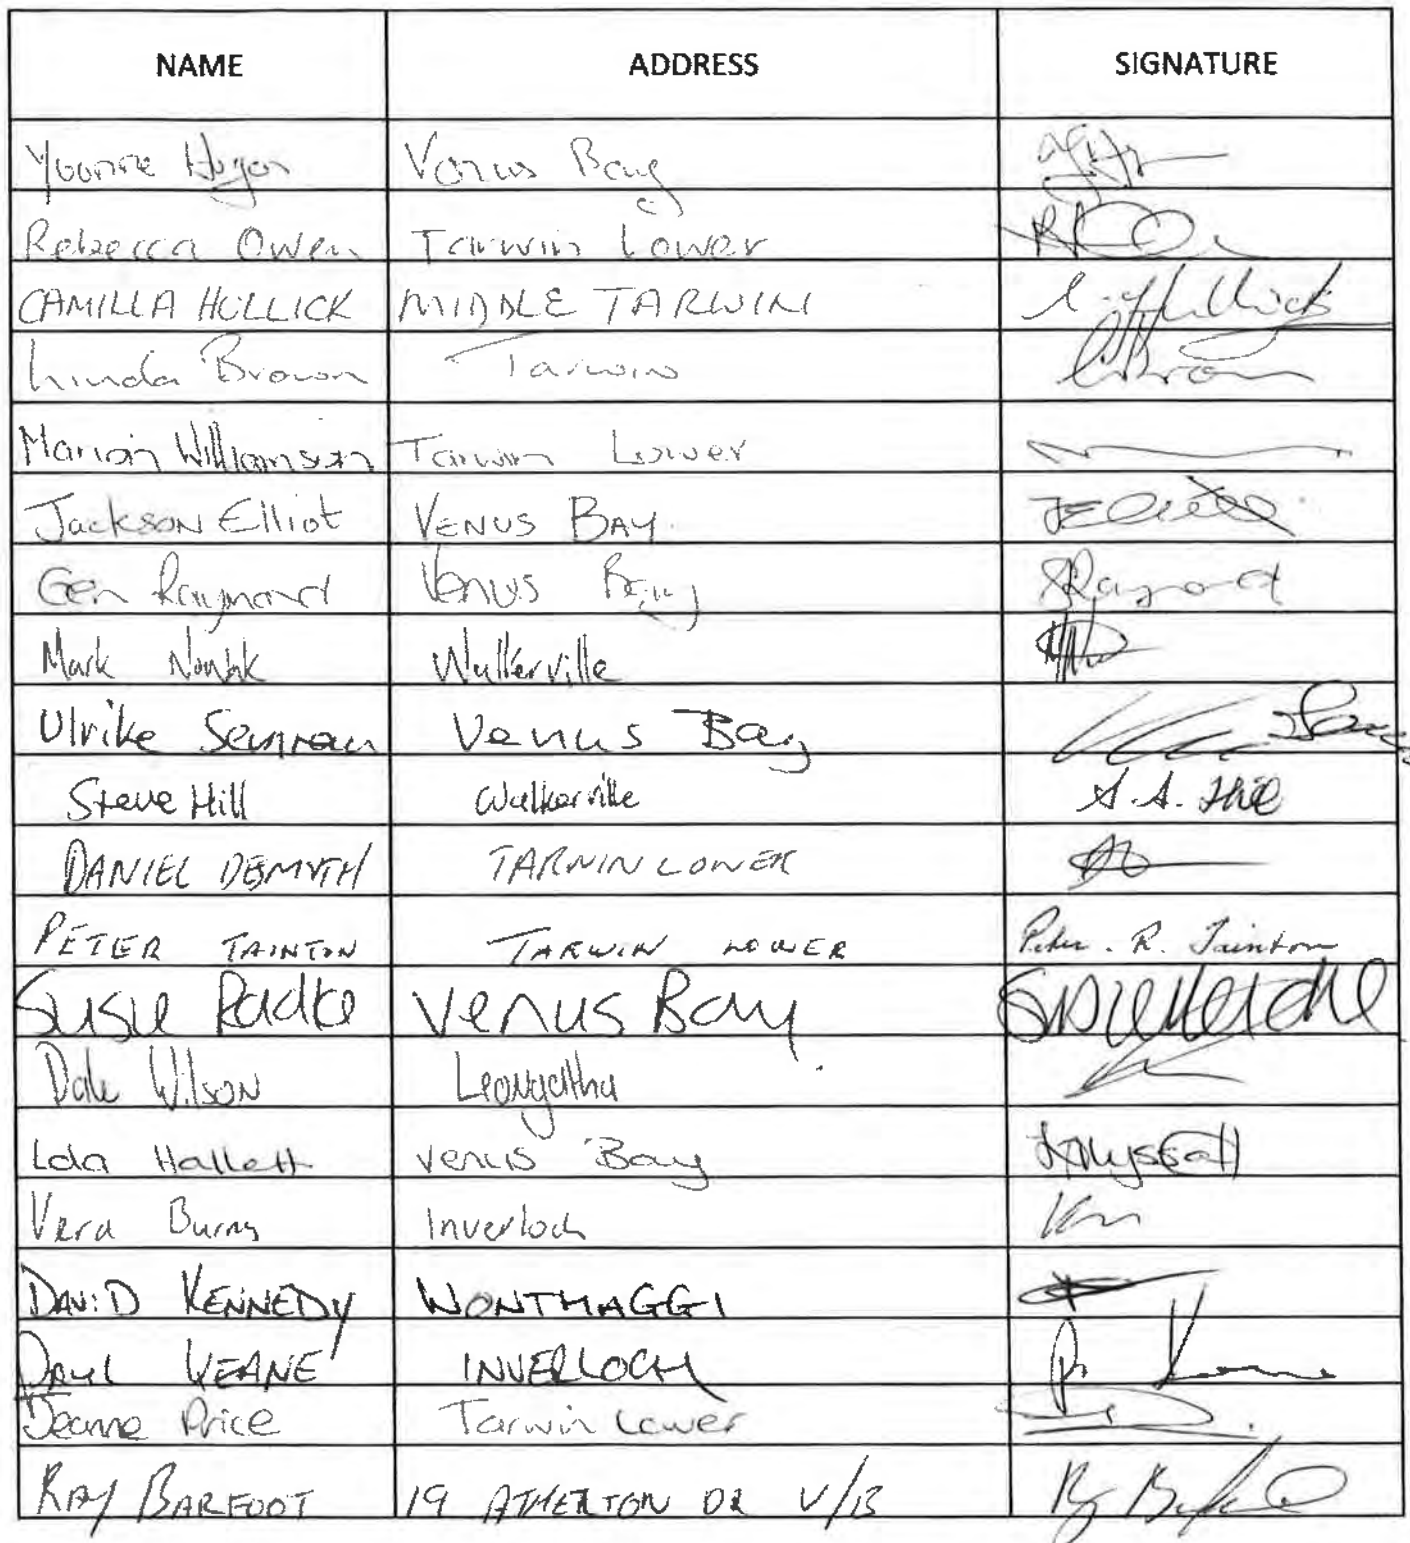 NAME ADDRESS SIGNATURE
Yvonne Hogan Venus Bay
Rebecca Owen Tarwin Lower
CAMILLA HULLICK MIDDLE TARWIN
Linda Brown Tarwin LBrown
Marion Williamson Tarwin Lower
Jackson Elliot VENUS BAY. JElliott
Gen Raymond Venus Bay GRaymond
Mark Nowak Walkerville
Ulrike Venus Bay
Steve Hill Walkerville S.A. Hill
DANIEL TARWIN LOWER
PETER TAINTON TARWIN LOWER Peter. R. Tainton
Susie Radke Venus Bay
Dale Wilson Leongatha
Lola Hallett Venus Bay
Vera Burns Inverloch
DAVID KENNEDY WONTHAGGI
PAUL KEANE INVERLOCH
Deanne Price Tarwin Lower
RAY BARFOOT 19 ATHERTON DR V/B